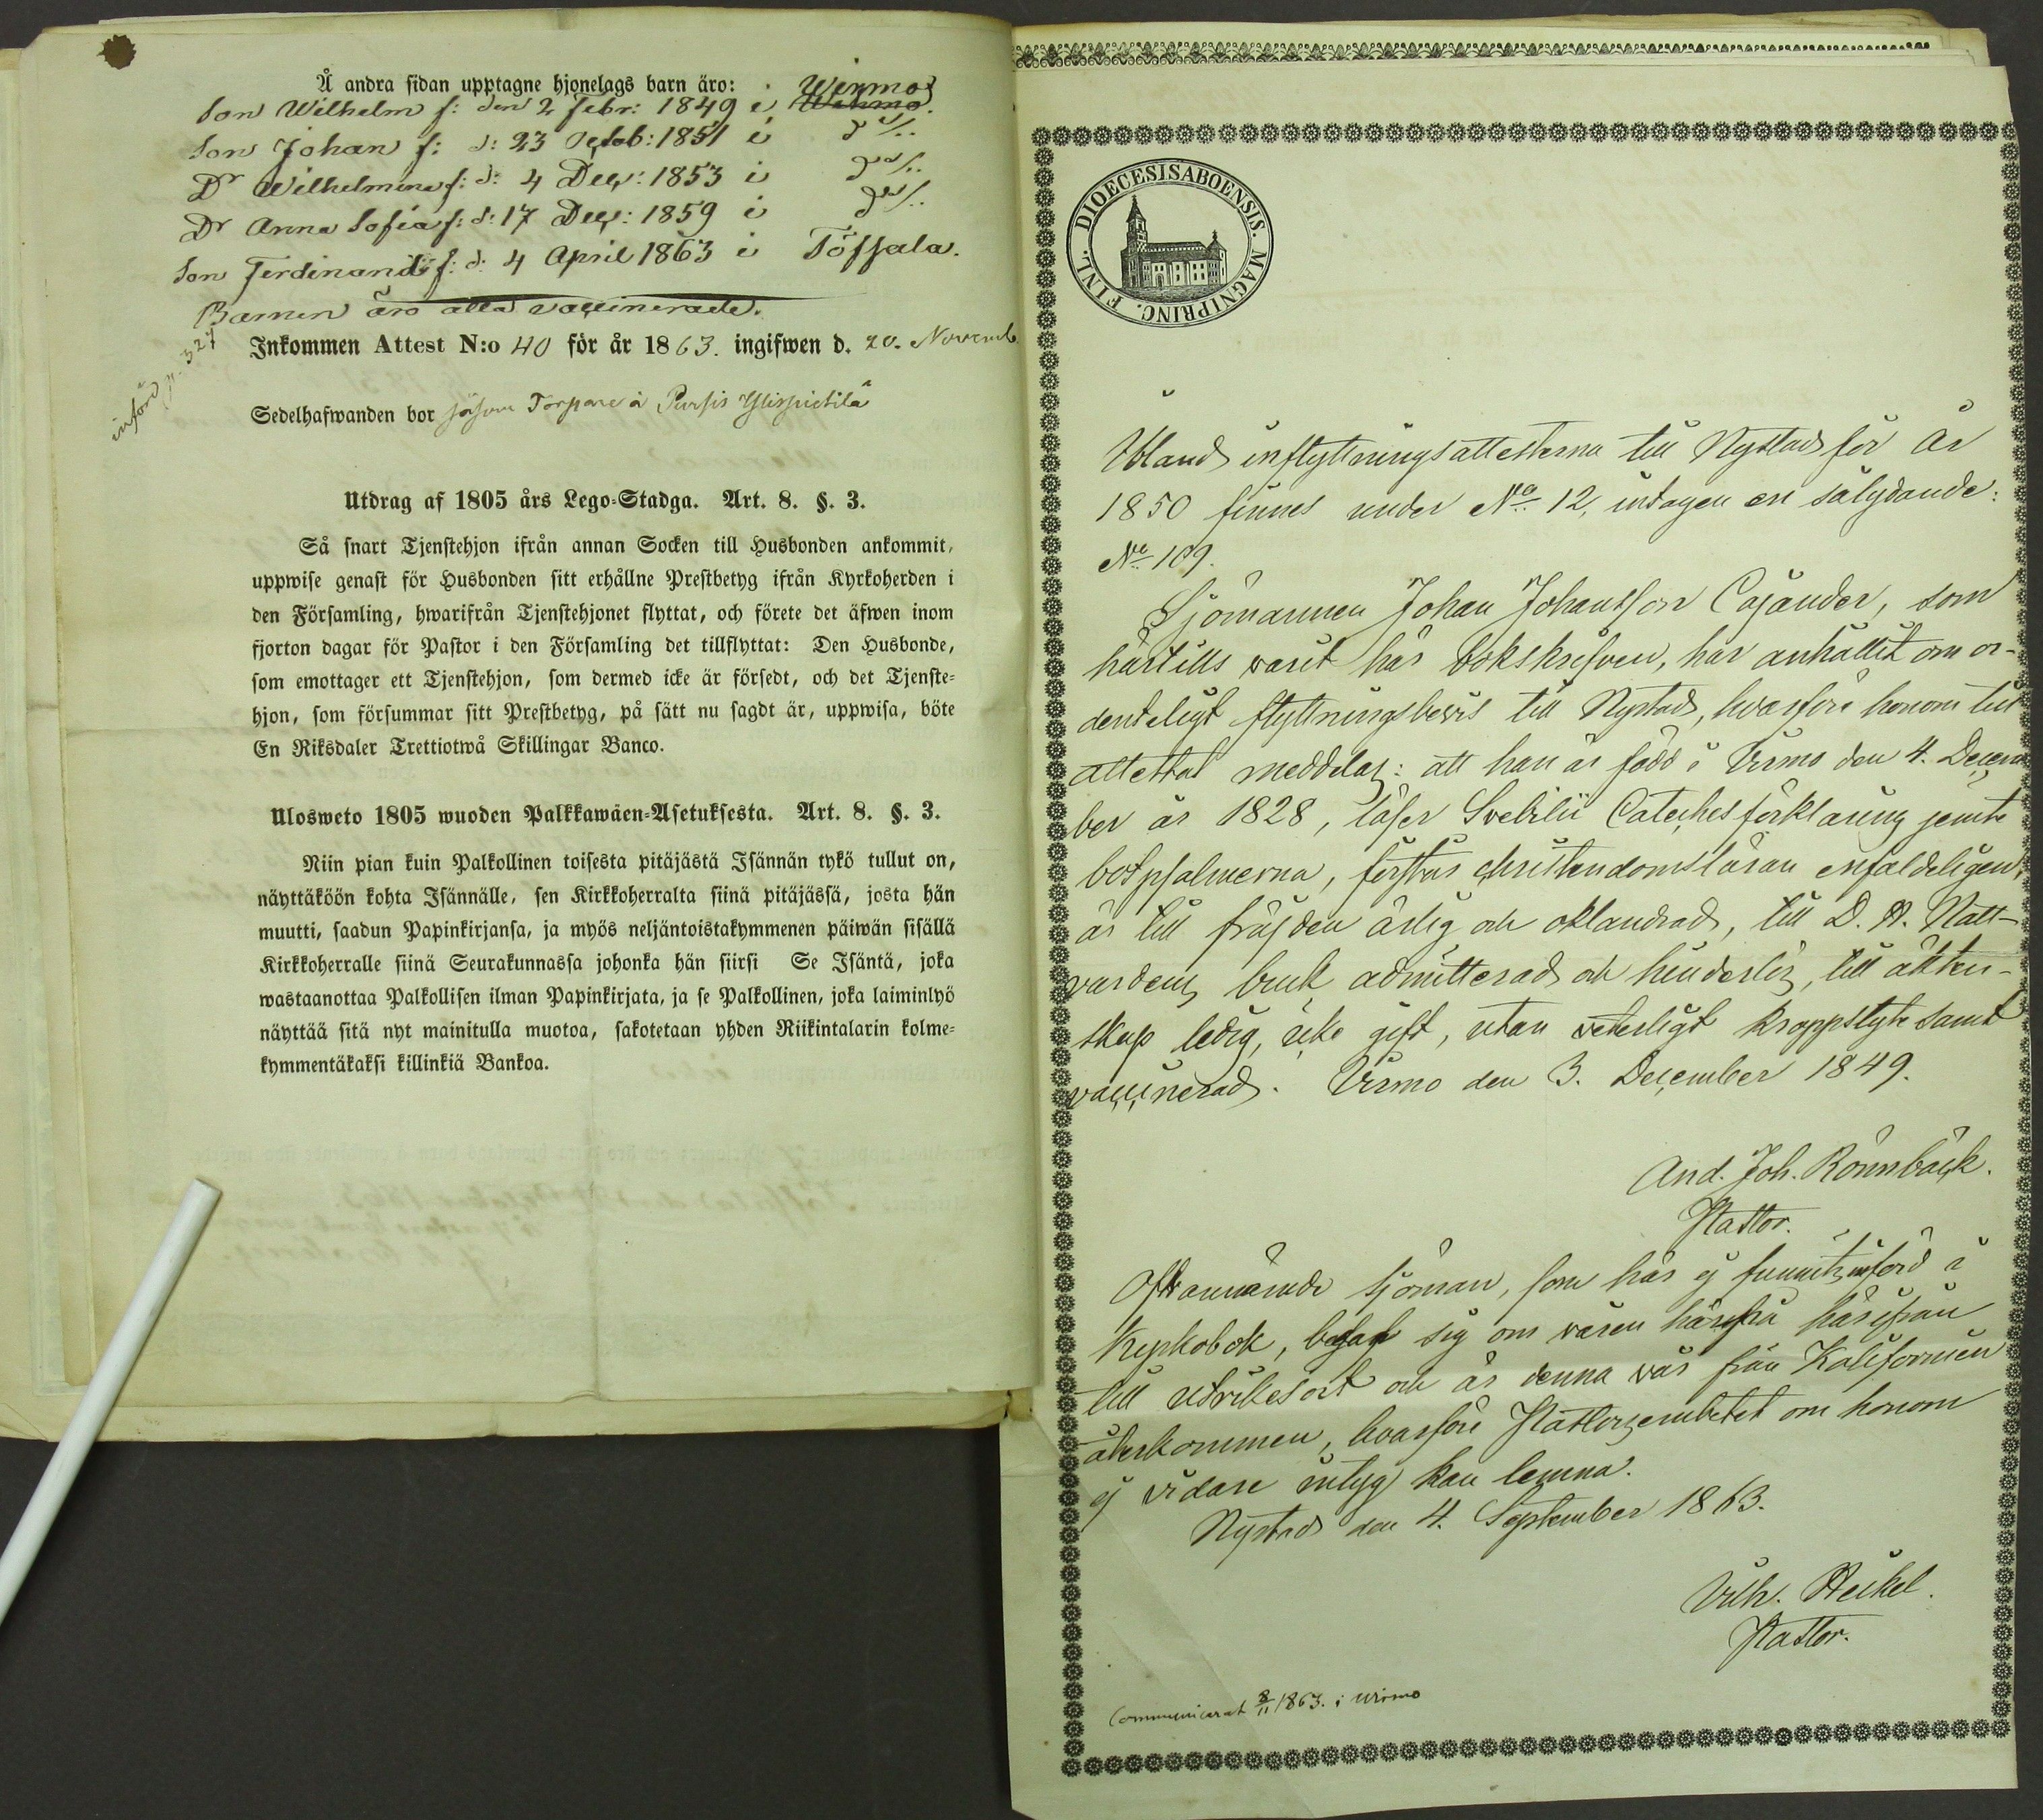 Å andra sidan upptagne hjonelags barn äro:
Son Wilhelm f: den 2 Febr: 1849 i Wirmo
Son Johan f: d: 23 Octob: 1851 i d:o
Dr Wilhelmina f: d: 4 Dec: 1853 i d:o
Dr Anna Sofia f: d: 17 Dec: 1859 i d:o
Son Ferdinand f: d: 4 April 1863 i Töfsala.
Barnen äro alla vaccinerade.
införd p. 327
Inkommen Attest N:o 40 för år 1863. ingifwen d. 20. Novemb
Sedelhafwanden bor såsom Torpare å Pursis Ylispietilä
Utdrag af 1805 års Lego-Stadga. Art. 8. §. 3.
Så snart Tjenstehjon ifrån annan Socken till Husbonden ankommit,
uppwise genast för Husbonden sitt erhållne Prestbetyg ifrån Kyrkoherden i
den Församling, hwarifrån Tjenstehjonet flyttat, och förete det äfwen inom
fjorton dagar för Pastor i den Församling det tillflyttat: Den Husbonde,
som emottager ett Tjenstehjon, som dermed icke är försedt, och det Tjenste-
hjon, som försummar sitt Prestbetyg, på sätt nu sagdt är, uppwisa, böte
En Riksdaler Trettiotwå Skillingar Banco.
Ulosweto 1805 wuoden Palkkawäen-Asetuksesta. Art. 8. §. 3.
Niin pian kuin Palkollinen toisesta pitäjästä Isännän tykö tullut on,
näyttäköön kohta Isännälle, sen Kirkkoherralta siinä pitäjässä, josta hän
muutti, saadun Papinkirjansa, ja myös neljäntoistakymmenen päiwän sisällä
Kirkkoherralle siinä Seurakunnassa johonka hän siirsi Se Isäntä, joka
wastaanottaa Palkollisen ilman Papinkirjata, ja se Palkollinen, joka laiminlyö
näyttää sitä nyt mainitulla muotoa, sakotetaan yhden Riikintalarin kolme-
kymmentäkaksi killinkiä Bankoa.
DIOECESISABOENSIS. MAGNIPRINC. FINL.
Ibland inflyttningsattesterna till Nystad för år
1850 finnes under No 12, intagen en sålydande:
No 109.
Sjömannen Johan Johansson Cajander, som
härtills varit här bokskrifven, har anhållit om or-
denteligt flyttningsbevis till Nystad, hvarföre honom till
attestat meddelas: att han är född i Virmo den 4. Decem
ber år 1828, läser Svebilii Cateches förklaring jemte
botpsalmerna, förstår christendomsläran enfaldeligen,
är till frejden ärlig och oklandrad, till D. H. Natt-
vardens bruk admitterad och hinderlös, till äkten-
skap ledig, icke gift, utan veterligt kroppslyte samt
vaccinerad. Virmo den 3. December 1849.
And. Joh. Rönnbäck.
Pastor.
Ofvannämnde sjöman, som här ej funnits införd i
Kyrkobok, begaf sig om våren härpå härifrån
till utrikesort och är denna vår från Kalifornien
återkommen, hvarföre Pastorsembetet om honom
ej vidare intyg kan lemna.
Nystad den 4. September 1863.
Vilh. Heikel.
Pastor.
Communicerat 8/11 1863. i Wirmo